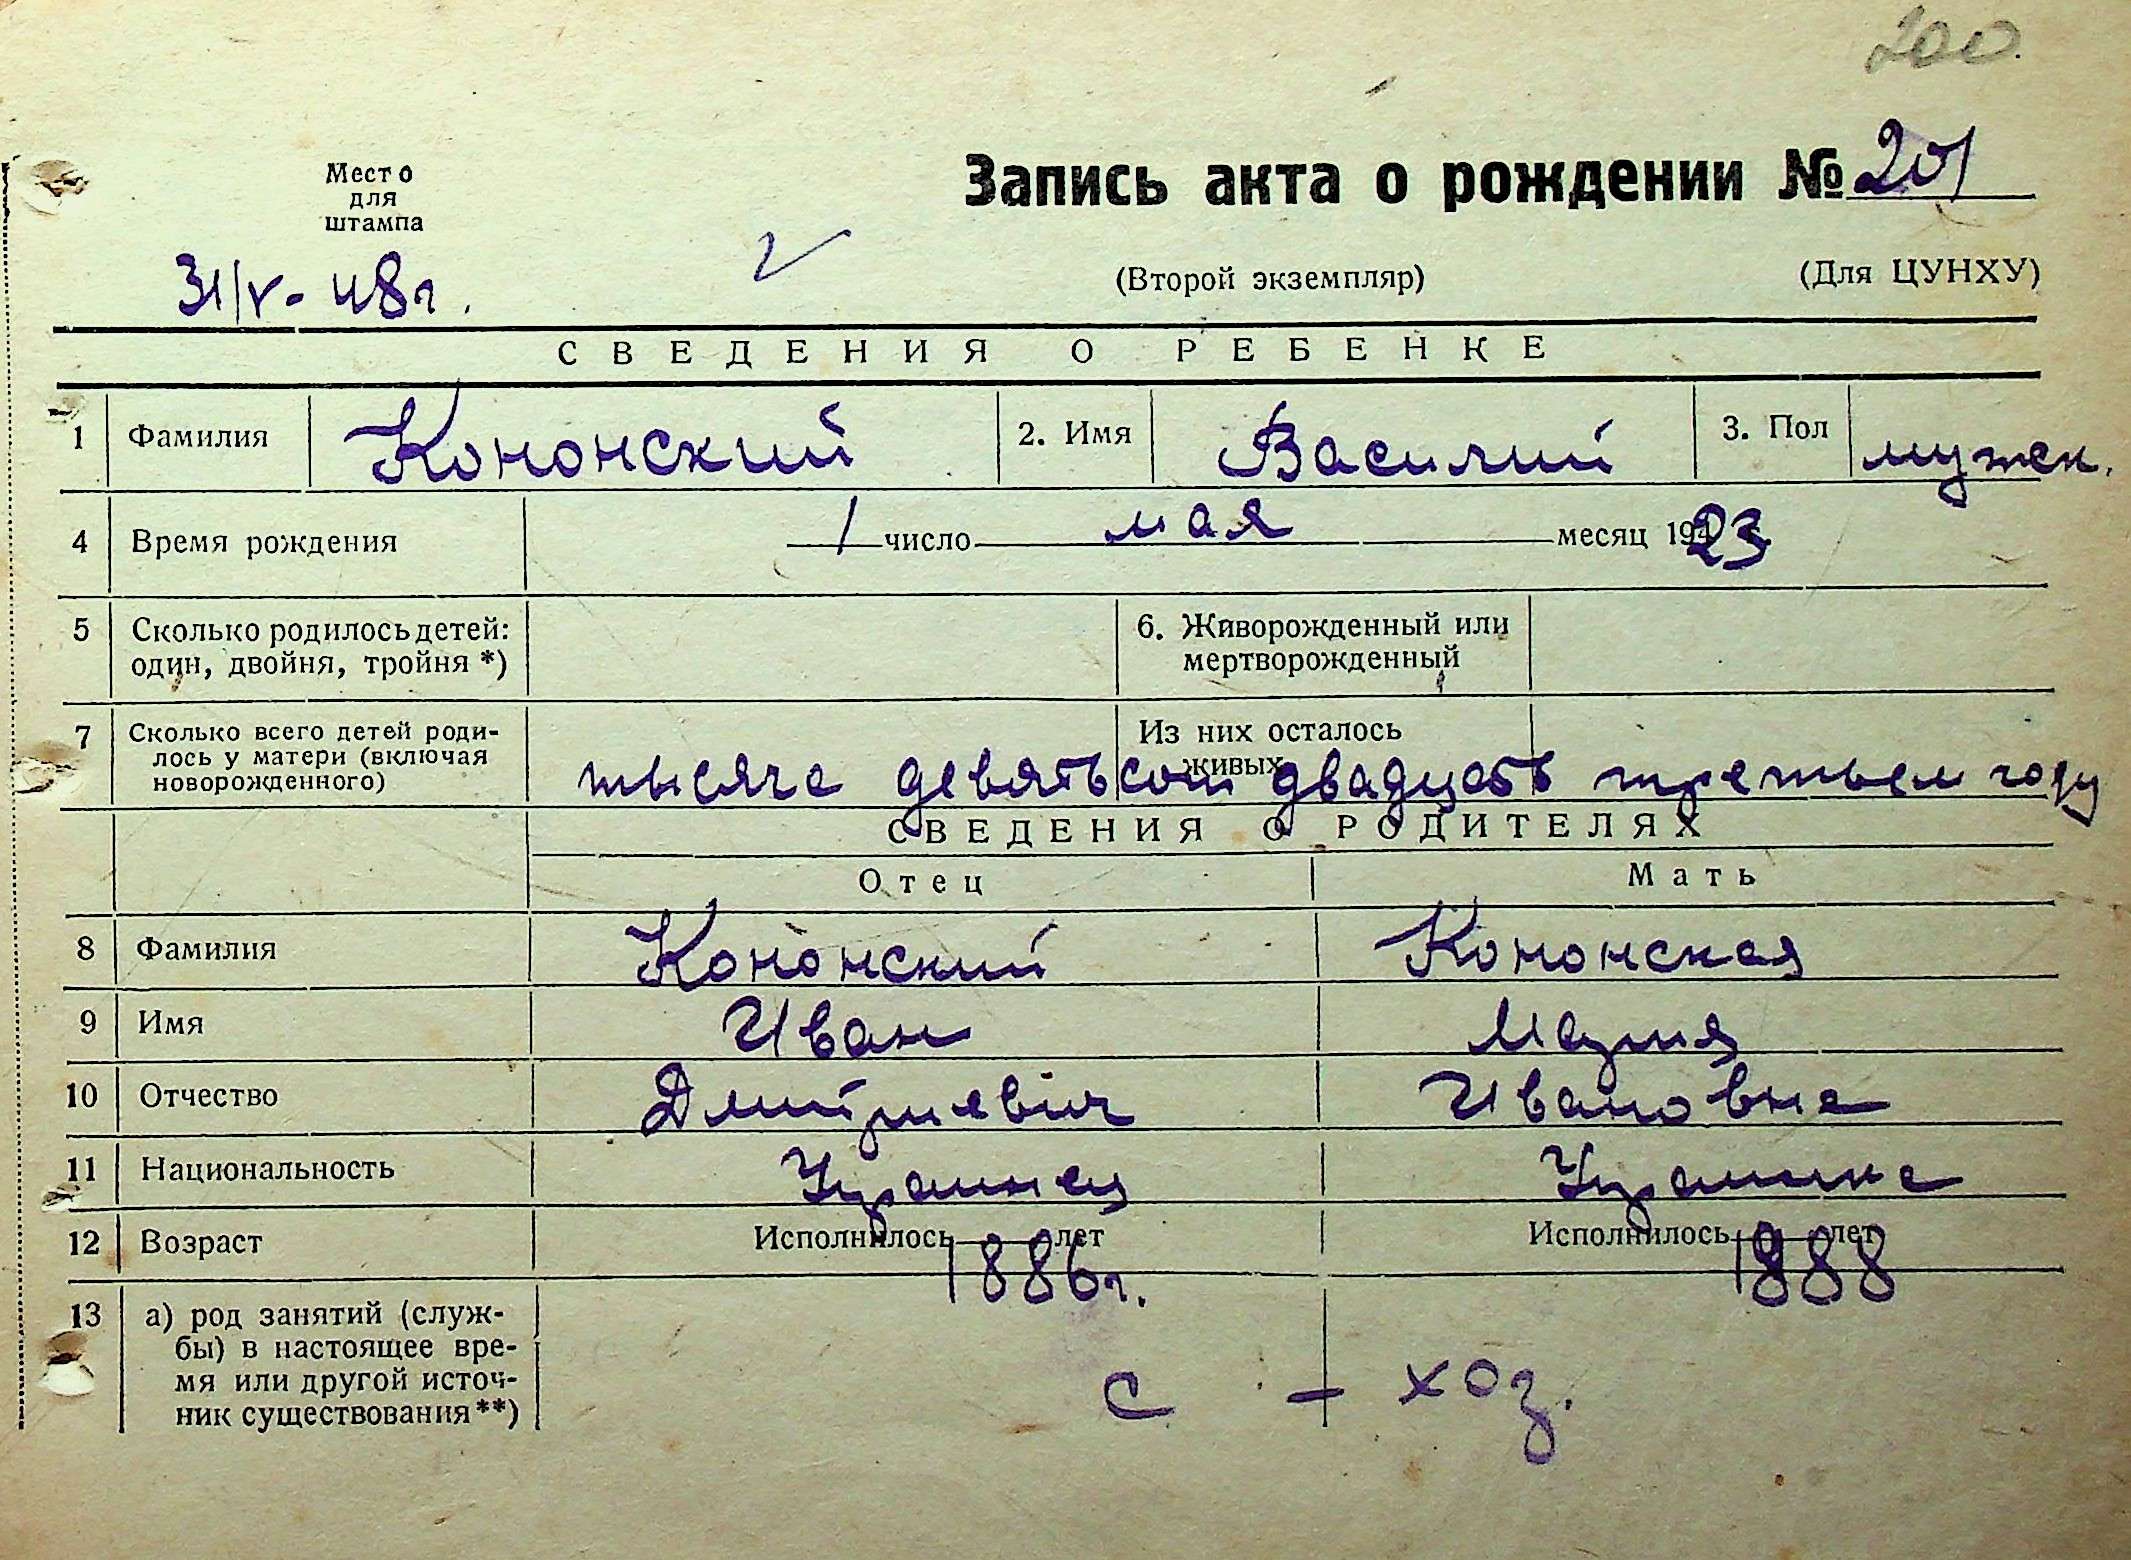 200.
Место
для
штампа
Запись акта о рождении № 201
31/V-48г.
(Второй экземпляр)
(Для ЦУНХУ)
СВЕДЕНИЯ О РЕБЕНКЕ
1 Фамилия Кононский 2. Имя Василий 3. Пол мужск.
4 Время рождения 1 число мая месяц 1923
5 Сколько родилось детей: один, двойня, тройня *) 6. Живорожденный или мертворожденный
7 Сколько всего детей роди-
лось у матери (включая
новорожденного)
Из них осталось
живых
тысяча девятьсот двадцать третьем году
СВЕДЕНИЯ О РОДИТЕЛЯХ
Отец Мать
8 Фамилия Кононский Кононская
9 Имя Иван Мария
10 Отчество Дмитриевич Ивановна
11 Национальность Украинец Украинка
12 Возраст Исполнилось лет 1886г. Исполнилось лет 1888
13 а) род занятий (служ-
бы) в настоящее вре-
мя или другой источ-
ник существования**)
с - хоз.